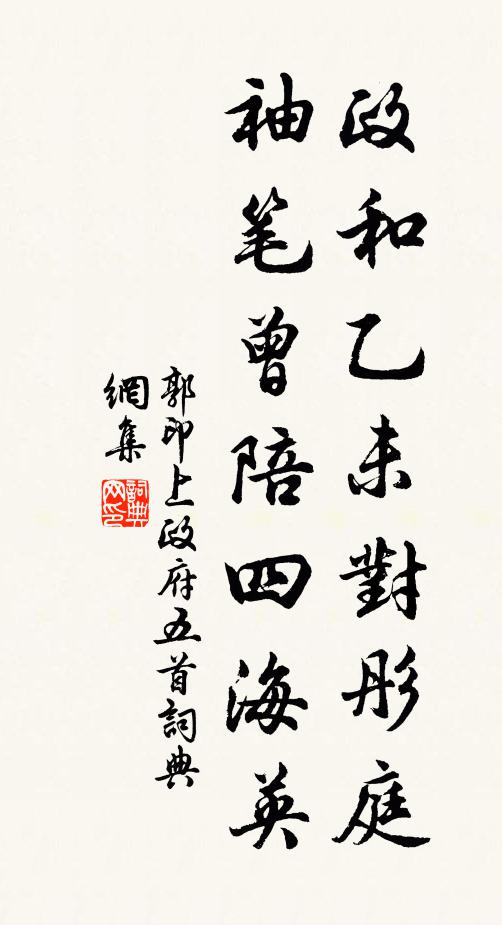 政和乙未對彤庭
袖笔曾陪四海英
郭印上政府五首詞典
網集
詞典網印